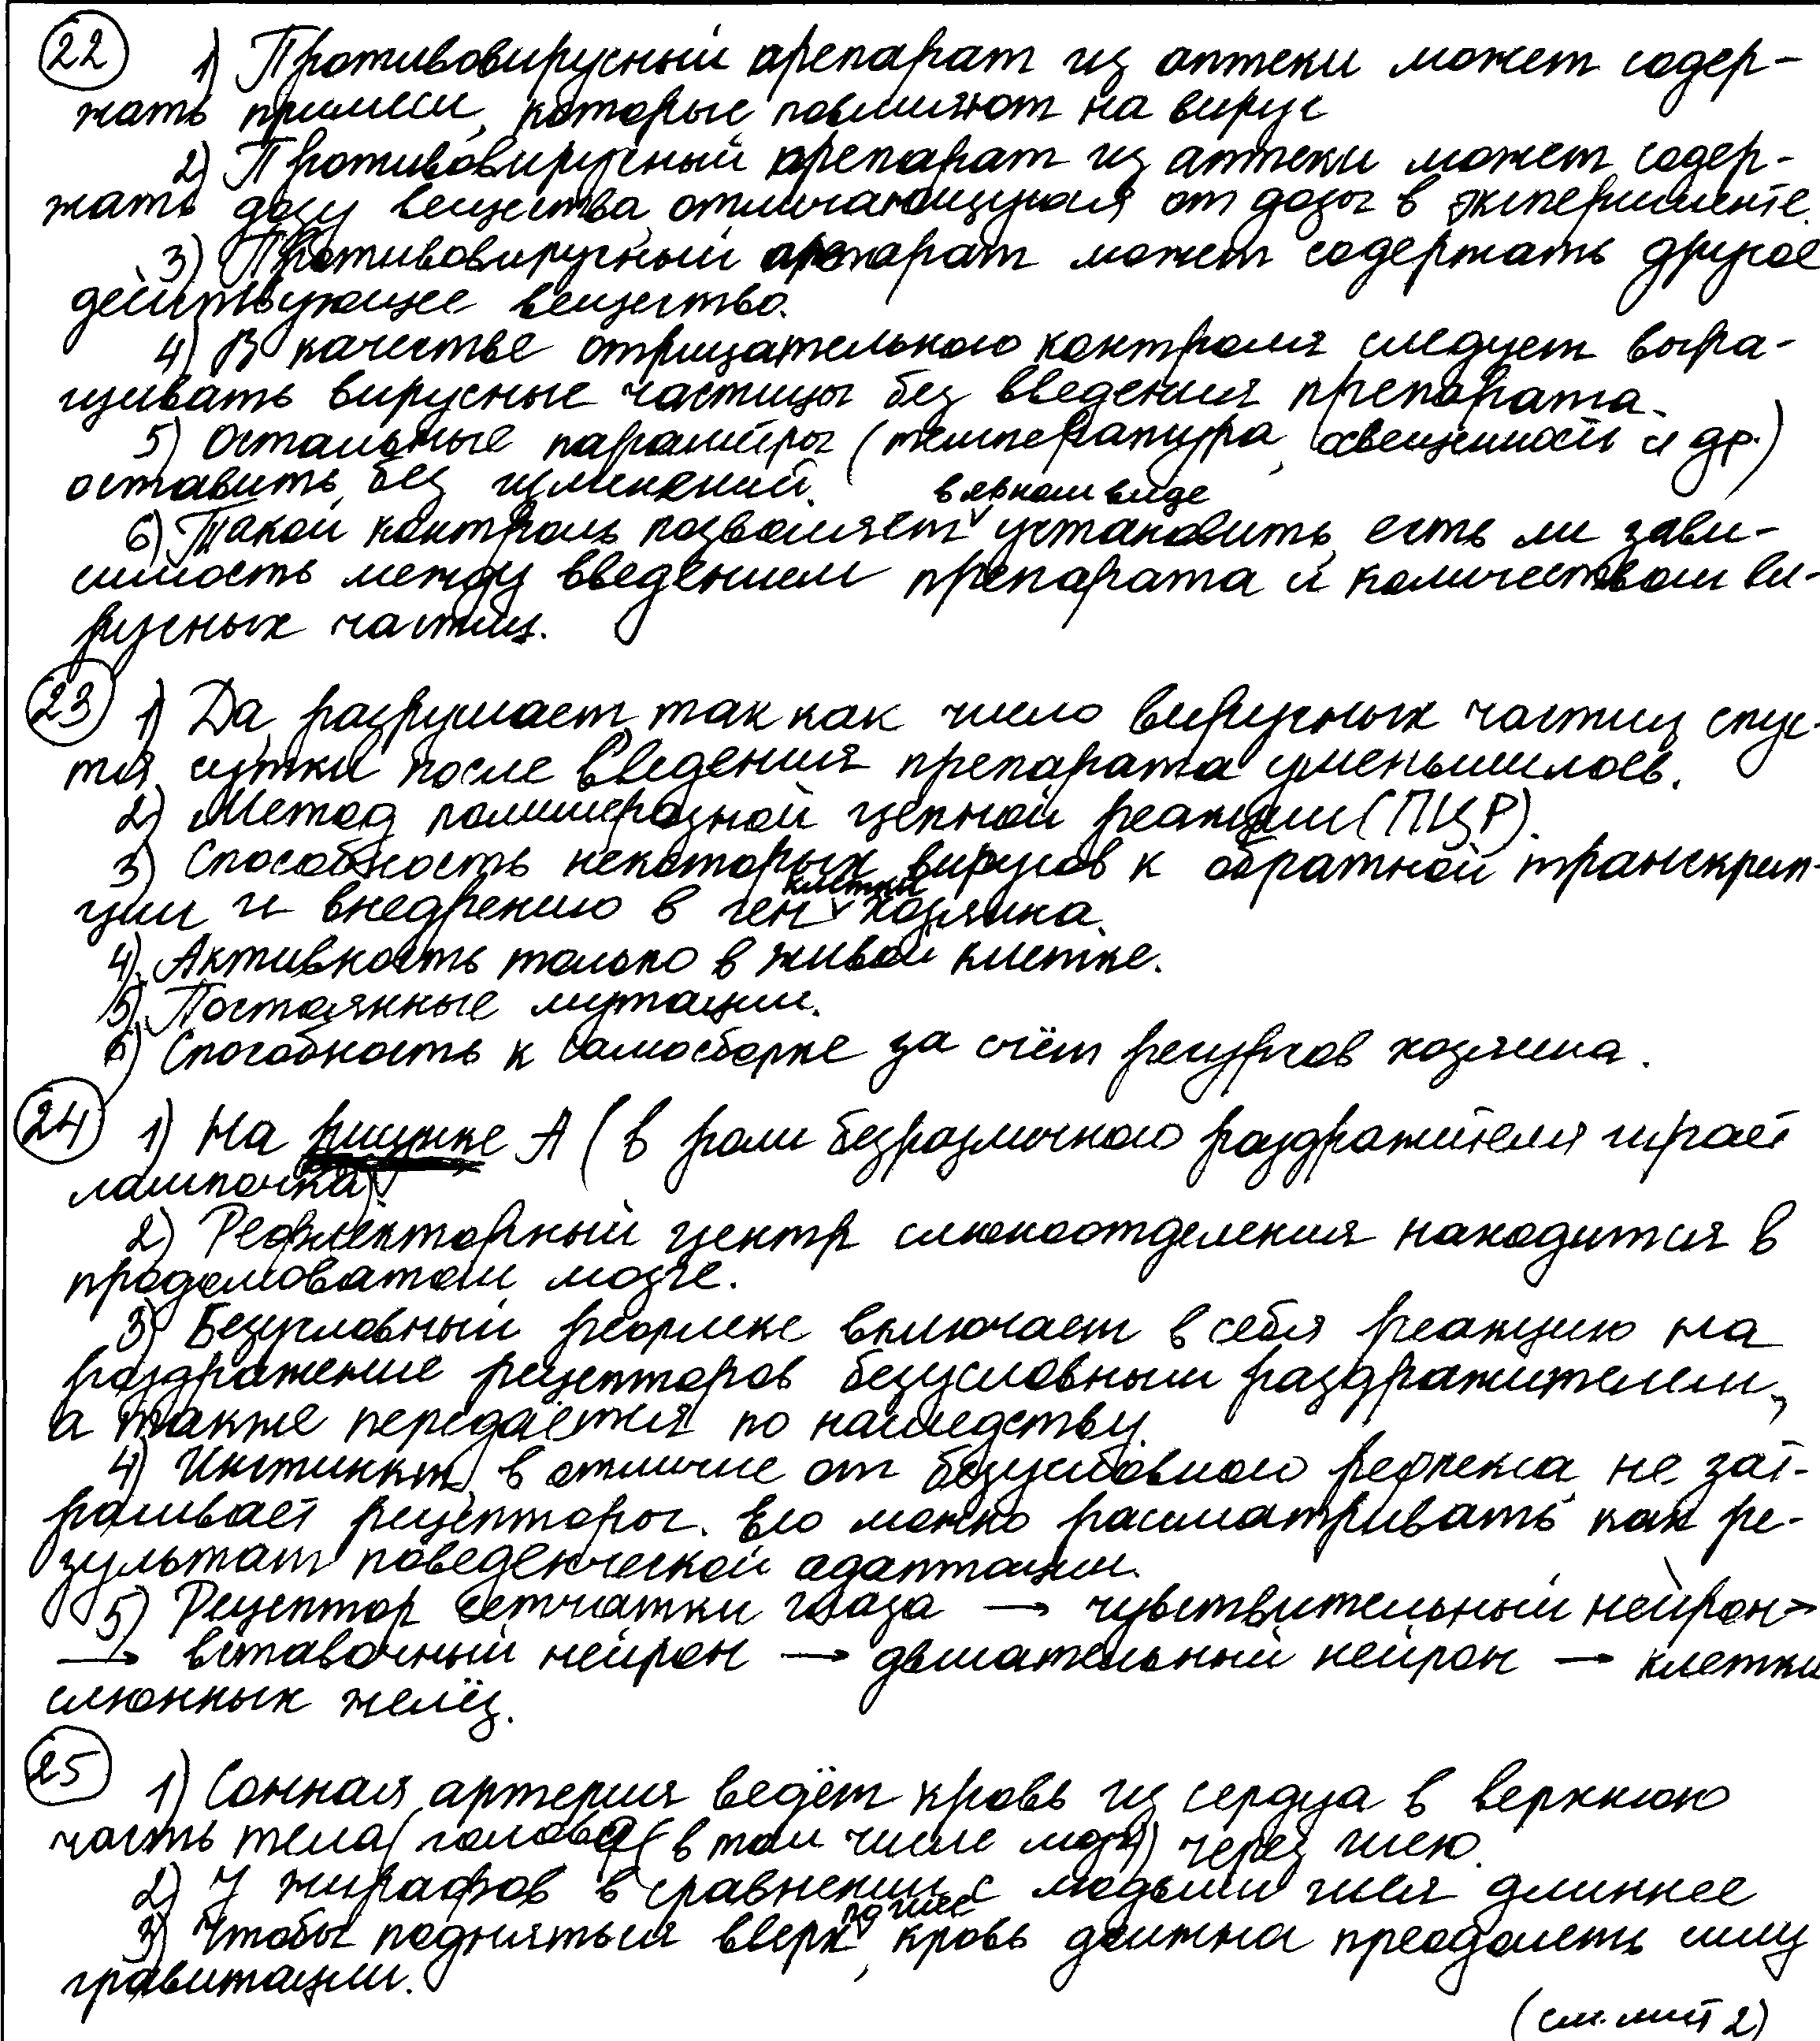 22 1) Противовирусный препарат из аптеки может содер-
жать примеси, которые повлияют на вирус
2) Противовирусный препарат из аптеки может содер-
жать дозу вещества, отличающуюся от дозы в эксперименте.
3) Противовирусный препарат может содержать другое
действующее вещество.
4) В качестве отрицательного контроля следует выра-
щивать вирусные частицы без введения препарата.
5) Остальные параметры (температура, освещённость и др.)
оставить без изменений.
в явном виде
6) Такой контроль позволяет установить, есть ли зави-
симость между введением препарата и количеством ви-
русных частиц.
23 1) Да, разрушает, так как число вирусных частиц спус-
тя сутки после введения препарата уменьшилось.
2) Метод полимеразной цепной реакции (ПЦР).
3) Способность некоторых вирусов к обратной транскрип-
клетки
ции и внедрению в ген хозяина.
4) Активность только в живой клетке.
5) Постоянные мутации.
6) Способность к самосборке за счёт ресурсов хозяина.
24 1) На рисунке А (в роли безразличного раздражителя играет
лампочка).
2) Рефлекторный центр слюноотделения находится в
продолговатом мозге.
3) Безусловный рефлекс включает в себя реакцию на
раздражение рецепторов безусловным раздражителем,
а также передаётся по наследству.
4) Инстинкт, в отличие от безусловного рефлекса, не зат-
рагивает рецепторы. Его можно рассматривать как ре-
зультат поведенческой адаптации.
5) Рецептор сетчатки глаза → чувствительный нейрон →
→ вставочный нейрон → двигательный нейрон → клетки
слюнных желёз.
25 1) Сонная артерия ведёт кровь из сердца в верхнюю
часть тела (голова (в том числе мозг) через шею.
2) У жирафов в сравнении с людьми шея длиннее
по шее
3) Чтобы подняться вверх, кровь должна преодолеть силу
гравитации.
(см. лист 2)